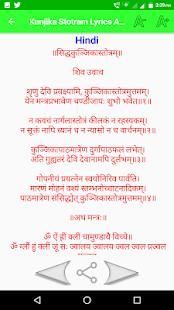 3:09
Kunjika Stotram Lyrics A...
Hindi
॥सिद्धकुञ्जिकास्तोत्रम्॥
शिव उवाच
शृणु देवि प्रवक्ष्यामि, कुञ्जिकास्तोत्रमुत्तमम्।
येन मन्त्रप्रभावेण चण्डीजापः शुभो भवेत॥१॥
न कवचं नार्गलास्तोत्रं कीलकं न रहस्यकम्।
न सूक्तं नापि ध्यानं च न न्यासो न च वार्चनम्॥२॥
कुञ्जिकापाठमात्रेण दुर्गापाठफलं लभेत्।
अति गुह्यतरं देवि देवानामपि दुर्लभम्॥३॥
गोपनीयं प्रयत्नेन स्वयोनिरिव पार्वति।
मारणं मोहनं वश्यं स्तम्भनोच्चाटनादिकम्।
पाठमात्रेण संसिद्ध्येत् कुञ्जिकास्तोत्रमुत्तमम्॥४॥
॥अथ मन्त्रः॥
ॐ ऐं ह्रीं क्लीं चामुण्डायै विच्चे॥
ॐ ग्लौं हुं क्लीं जूं सः ज्वालय ज्वालय ज्वल ज्वल प्रज्वल